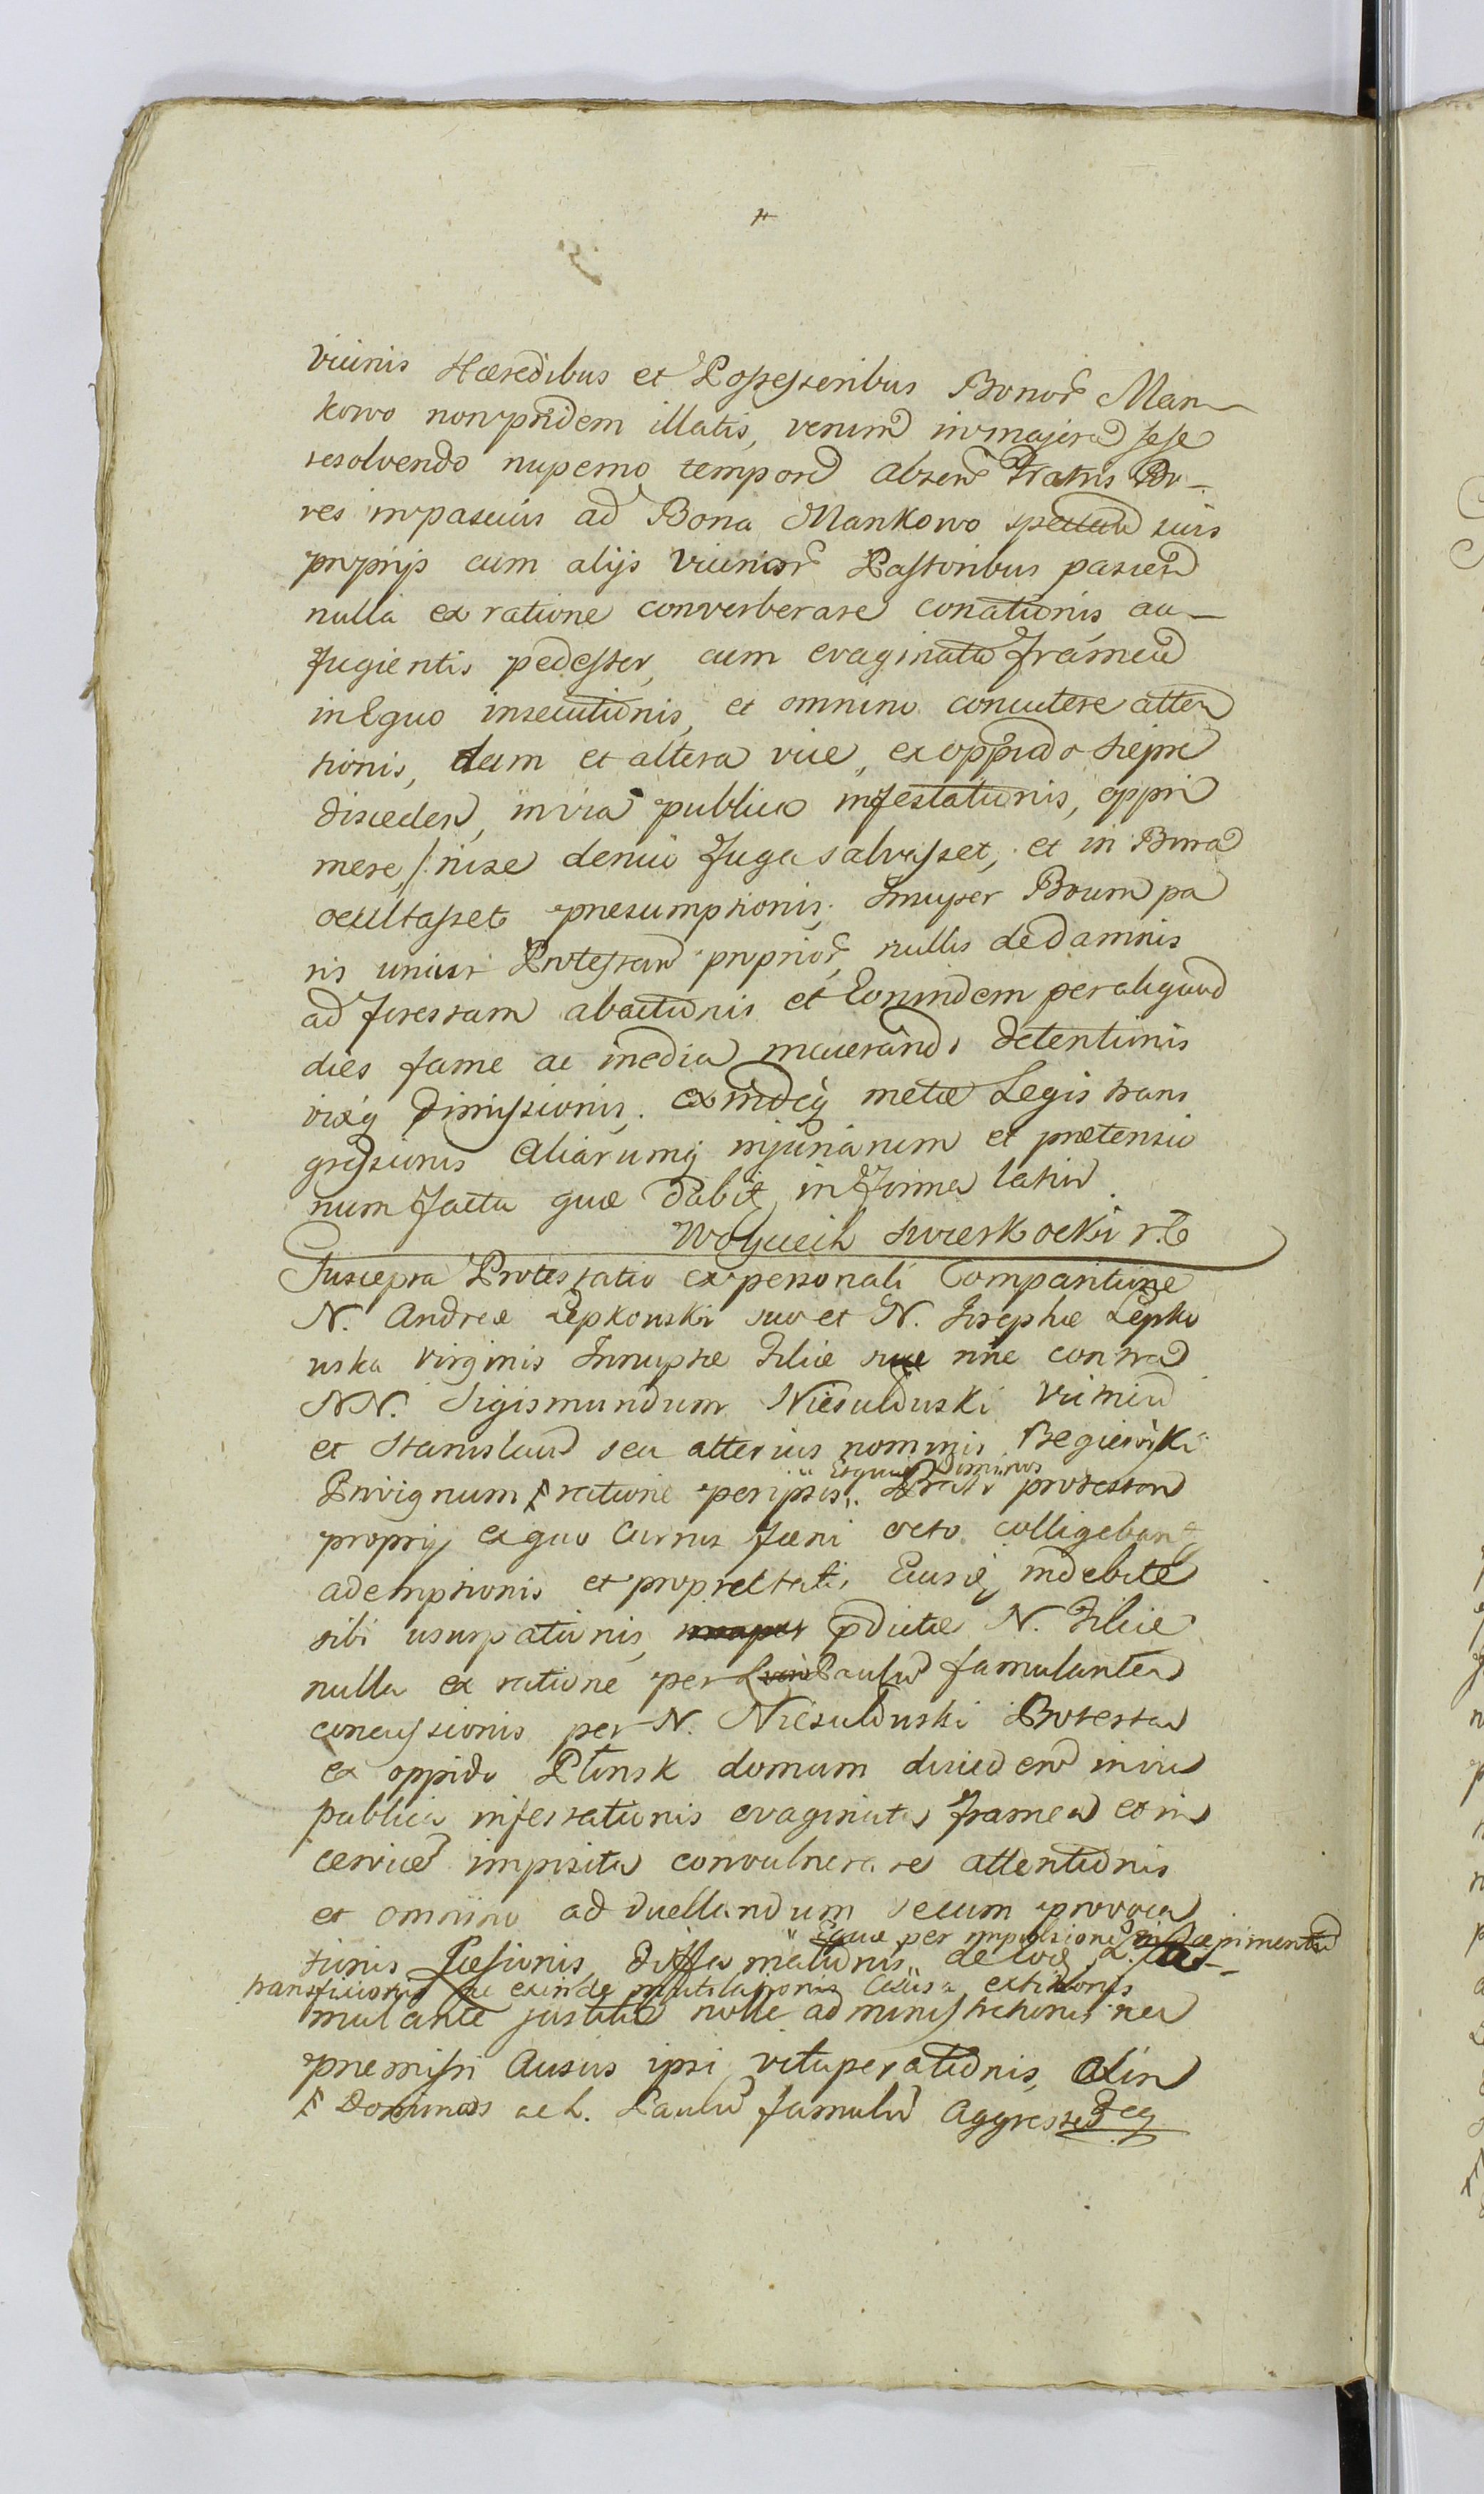 vicinis Hæredibus et Possessoribus Bonor Man
kowo non pridem illatis, verum in majora sese
resolvendo nuperno tempore absen Fratris Bo-
ves in pascuis ad Bona Mankowo spectan suis
proprijs cum alijs vicinior Pastoribus pascen
nulla ex ratione converberare conationis au-
fugientis pedester, cum evaginata framea
in Equo insecutionis, et omnino concutere atten
tionis, dum et altera vice, ex oppido Sieprc
disceden, in via publica infestationis, oppri
mere, /: nise denuo fuga salvasset, et in Bona
occultasset præsumptionis; Insuper Boum pa
ris unius Protestan proprior, nullis de damnis
ad forestam abactionis et Eorundem per aliquod
dies fame ac inedia macerando detentionis
vixq dimissionis. exindeq metæ Legis trans
gressionis Aliarumq injuriarum et prætensio
num facta quæ dabit in Forma latiu
Woyciech Swierkocki
Suscepta Protestatio ex personali Comparitione
N. Andreæ Lepkowski suo et N. Josephæ Lepko
wska Virginis Innuptæ Filiæ suæ nne contra
NN. Sigismundum Niesulowski Vitricu
et Stanislaum seu alterius nominis Begierski
Privignum ratione per ipsos " Eiquae Dominos " Prati protestan
proprij ex quo Currus fæni octo colligeban
ademptionis et proprietati Eius indebite
sibi usurpationis, pdictæ N. Filiæ
nulla ex ratione per Paulu famulantem
concussionis per N. Niesulowski Protestan
ex oppido Płonsk domum disceden in via
publica infestationis evaginata framea et in
cervice imposita convulnerare attentionis
et omnino ad duellandum secum provoca
" Equæ per impulsione in sæpimentu
tionis Læsionis diffamationis " de
transfixionis ac exinde mutilationis Causa extitionis
mulante justitiæ nolle administrationis nec
præmissi Ausus ipsi vituperationis, Alior
Dominos ac L. Paulu famulu Aggressu